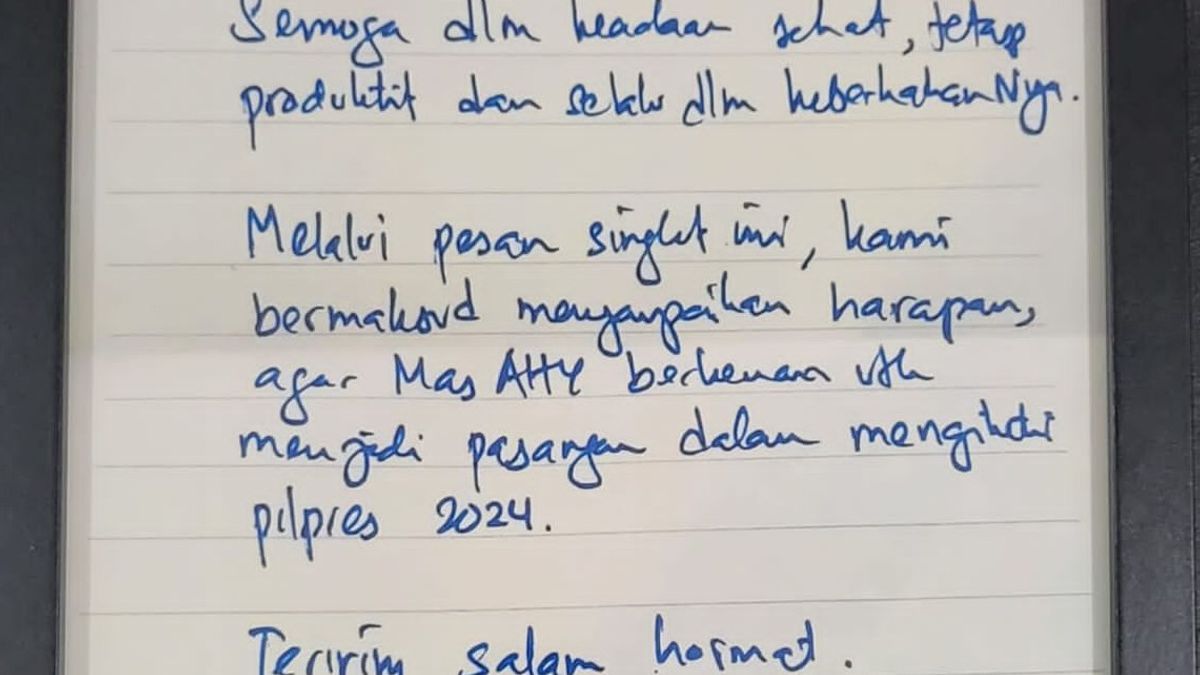 Semoga dlm keadaan sehat, tetap
produktif dan selalu dlm keberkahanNya.
Melalui pesan singkat ini, kami
bermaksud menyampaikan harapan,
agar Mas AHY berkenan utk
menjadi pasangan dalam mengikuti
pilpres 2024.
Teriring salam hormat.